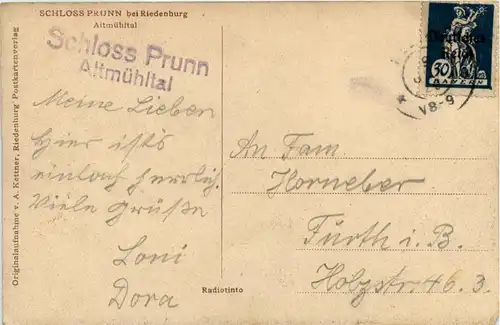 SCHLOSS PRUNN bei Riedenburg
Altmühltal
Schloss Prunn
Altmühltal
Meine Lieben
Hier ist's
einfach herrlich.
Viele Grüße
Loni
Dora
Originalaufnahme v. A. Kettner, Riedenburg Postkartenverlag
Radiotinto
50
BAYERN
V8-9
An Fam
Horneber
Fürth i. B.
Holzstr 46. 3.